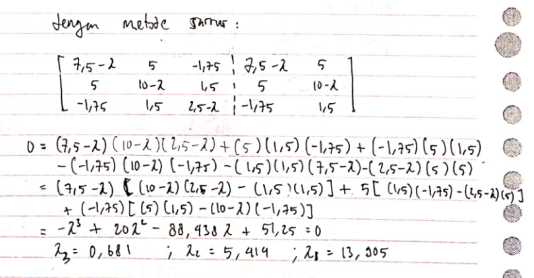 dengan metode sarrus :
[ 7,5-λ 5 -1,75 ¦ 7,5-λ 5 ]
[ 5 10-λ 1,5 ¦ 5 10-λ ]
[ -1,75 1,5 2,5-λ ¦ -1,75 1,5 ]
0 = (7,5-λ)(10-λ)(2,5-λ) + (5)(1,5)(-1,75) + (-1,75)(5)(1,5)
-(-1,75)(10-λ)(-1,75) - (1,5)(1,5)(7,5-λ) - (2,5-λ)(5)(5)
= (7,5-λ) [(10-λ)(2,5-λ) - (1,5)(1,5)] + 5[(1,5)(-1,75) - (2,5-λ)(5)]
+ (-1,75) [(5)(1,5) - (10-λ)(-1,75)]
= -λ³ + 20λ² - 88,438λ + 51,25 = 0
λ₃ = 0,681 ; λ₂ = 5,414 ; λ₁ = 13,905